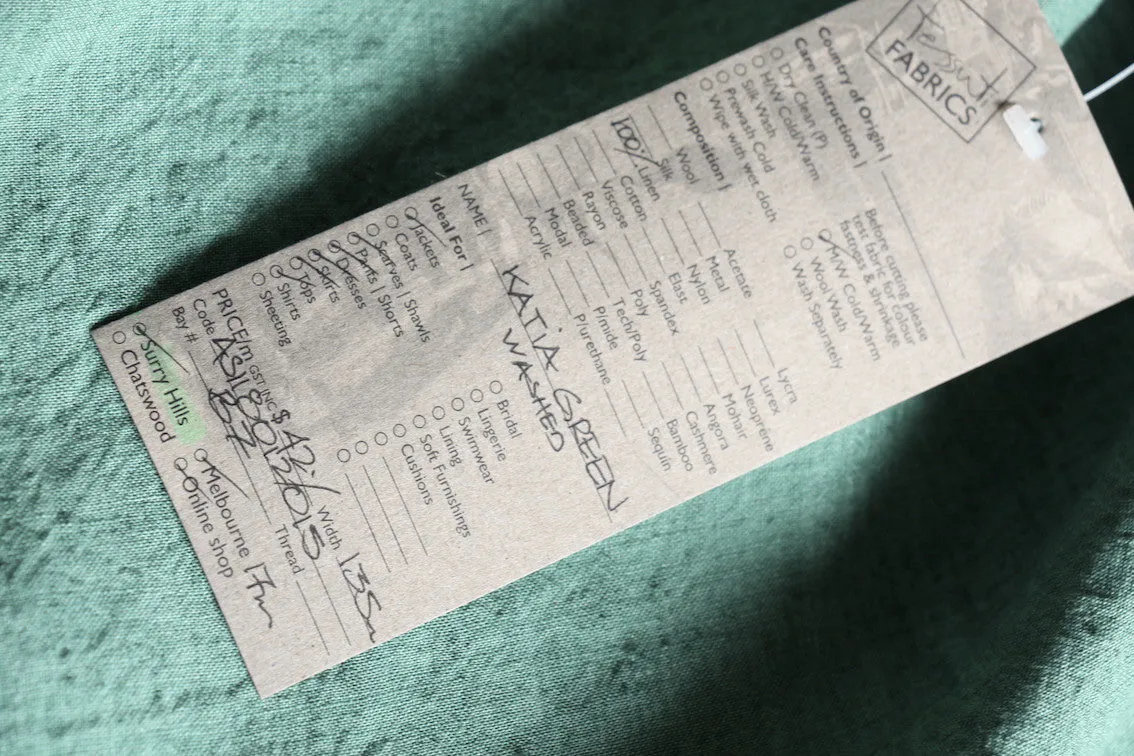 Tessuti
FABRICS
Country of Origin |
Care Instructions |
Dry Clean (P)
H/W Cold/Warm
Silk Wash
Prewash Cold
Wipe with wet cloth
Before cutting please
test fabric for colour
fastness & shrinkage
M/W Cold/Warm
Wool Wash
Wash Separately
Composition |
Wool
Silk
100% Linen
Cotton
Viscose
Rayon
Beaded
Modal
Acrylic
Acetate
Metal
Nylon
Elast
Spandex
Poly
Tech/Poly
P/mide
P/urethane
Lycra
Lurex
Neoprene
Mohair
Angora
Cashmere
Bamboo
Sequin
NAME | KATIA GREEN
WASHED
Ideal For |
Jackets
Coats
Scarves | Shawls
Pants | Shorts
Dresses
Skirts
Tops
Shirts
Sheeting
Bridal
Lingerie
Swimwear
Lining
Soft Furnishings
Cushions
PRICE/m GST INC $ Width 135m
Code
Bay # B7 Thread
Surry Hills
Chatswood
Melbourne 17m
Online shop